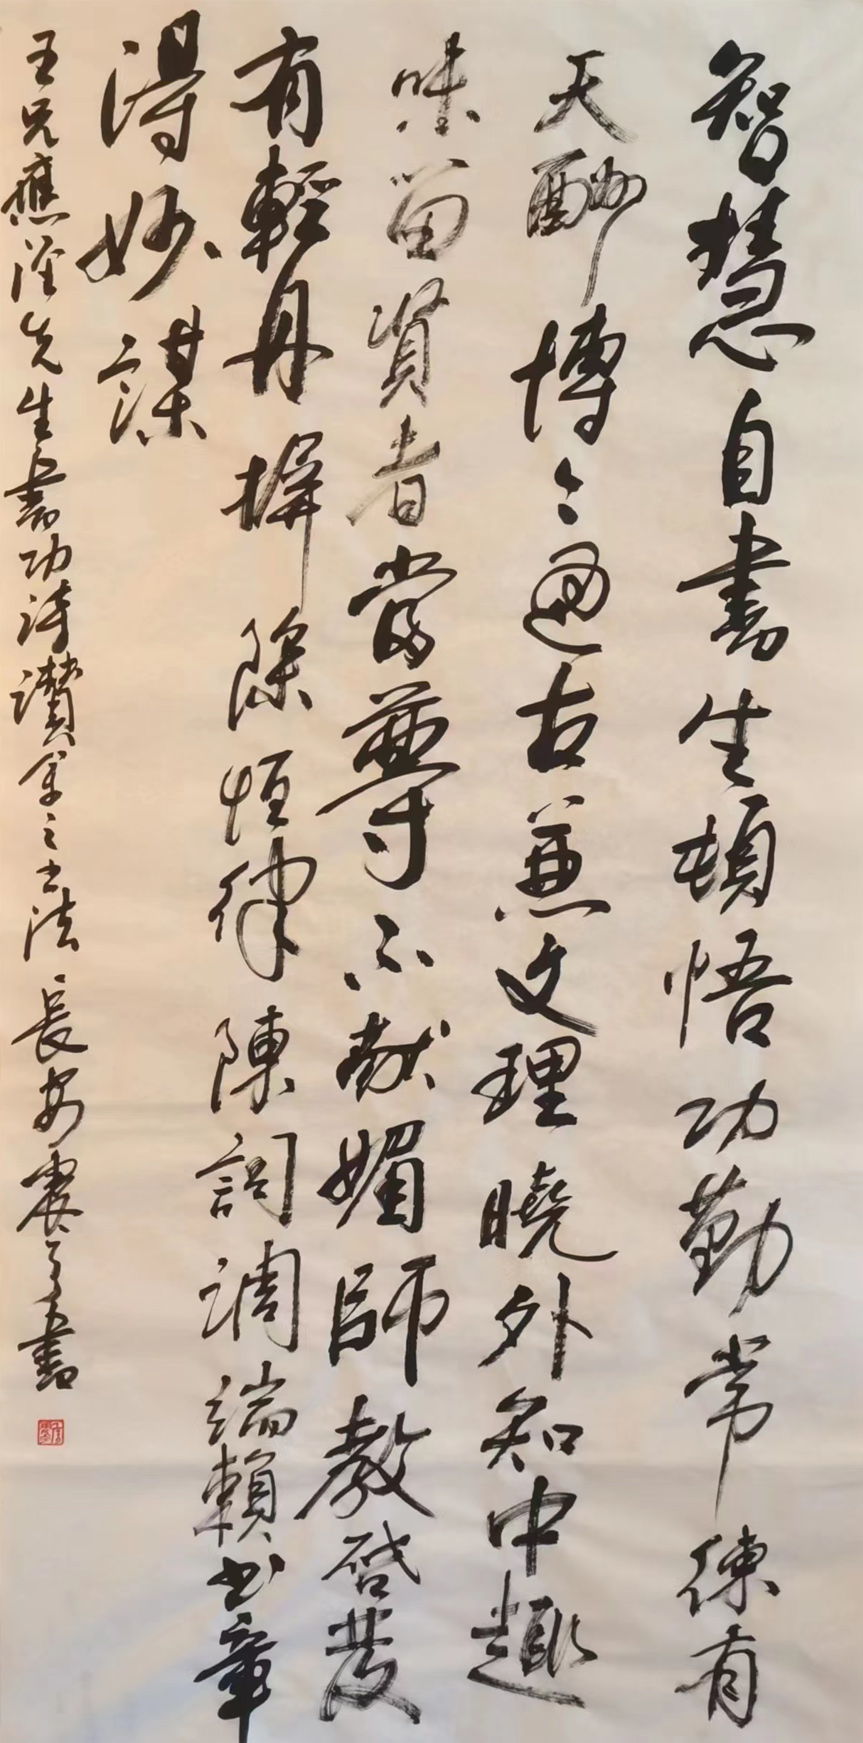 智慧自書生頓悟功勤常練有
天酬博々通古兼文理曉外知中趣
味留賢者當尊不献媚師教啓發
有輕舟摒除恒律陳詞調端賴书章
得妙謀
王兄應 先生書功詩讚余之书法 長安 書